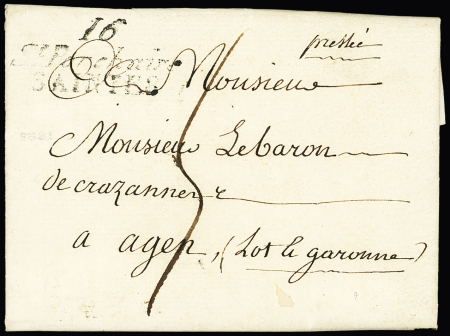 16
pressée
SAINTES
Monsieur
Monsieur Lebaron
de crazannes
a agen, (Lot & garonne)
5